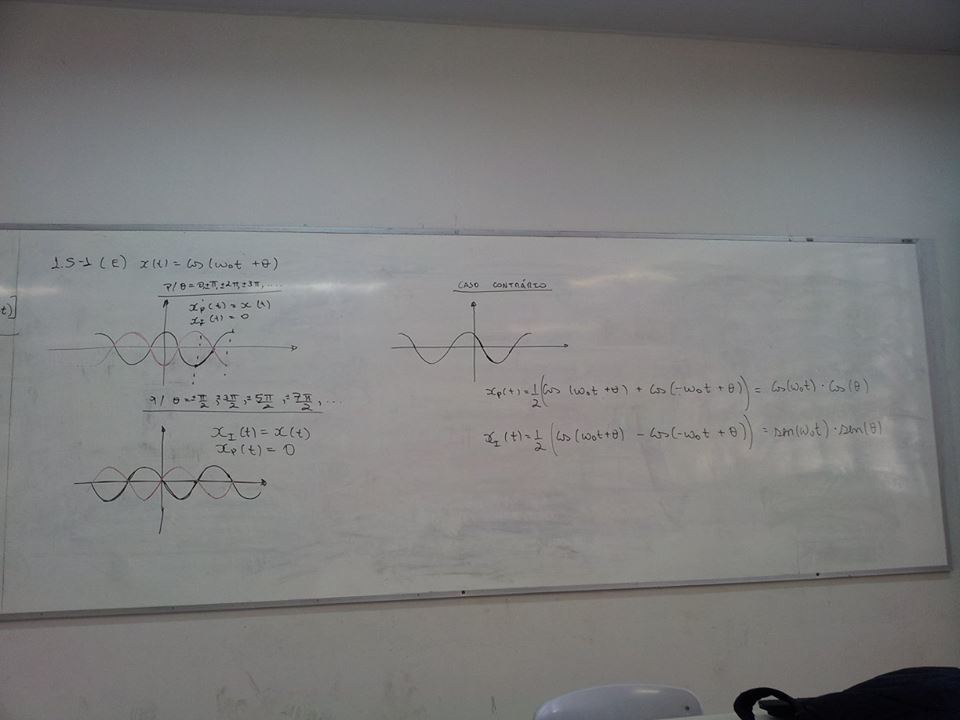 t)]
1.5-1 (E) x(t) = cos(ω₀t + θ)
P/ θ = 0, ±π, ±2π, ±3π, ....
x_p(t) = x(t)
x_I(t) = 0
P/ θ = ±π/2, ±3π/2, ±5π/2, ±7π/2, ...
x_I(t) = x(t)
x_p(t) = 0
CASO CONTRÁRIO
x_p(t) = 1/2 (cos(ω₀t + θ) + cos(-ω₀t + θ)) = cos(ω₀t) · cos(θ)
x_I(t) = 1/2 (cos(ω₀t + θ) - cos(-ω₀t + θ)) = sen(ω₀t) · sen(θ)